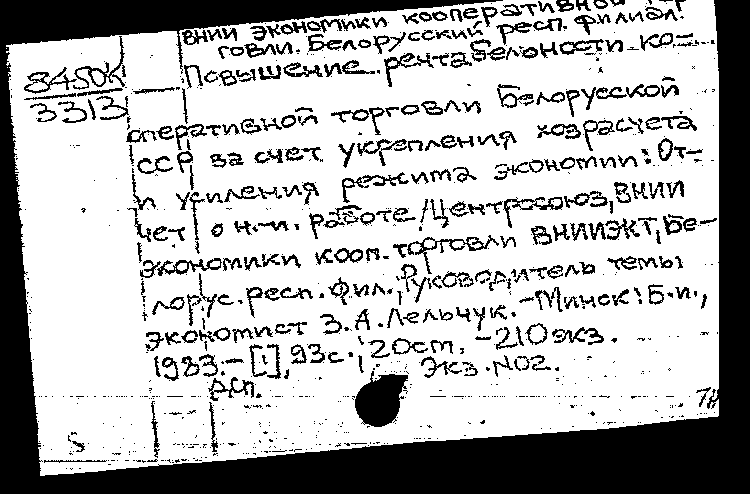 ВНИИ экономики кооперативной
говли. Белорусский респ. филиал.
8450К
3313
Повышение рентабельности ко-
оперативной торговли Белорусской
ССР за счет укрепления хозрасчета
и усиления режима экономии: От-
чет о н.-и. работе /Центросоюз, ВНИИ
экономики кооп. торговли ВНИИЭКТ, Бе-
лорус. респ. фил., Руководитель темы
экономист З.А. Лельчук. - Минск: Б.и.,
1983. - [1], 93с.; 20см. - 210 экз.
Экз. №02.
ДСП.
S